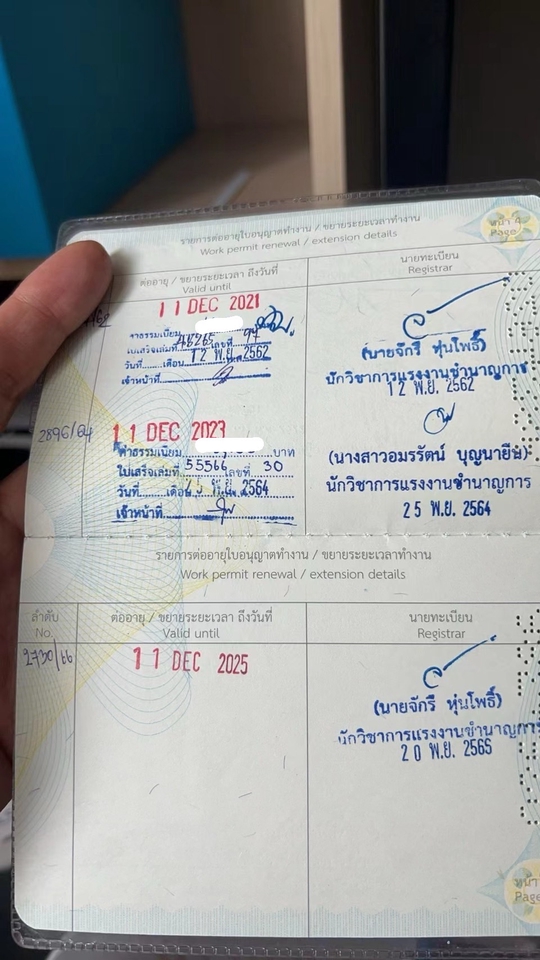 หน้า 4
Page
รายการต่ออายุใบอนุญาตทำงาน / ขยายระยะเวลาทำงาน
Work permit renewal / extension details
ต่ออายุ / ขยายระยะเวลา ถึงวันที่
Valid until
นายทะเบียน
Registrar
11 DEC 2021
ค่าธรรมเนียม
ใบเสร็จเล่มที่ เลขที่ 97
วันที่ เดือน 12 พ.ย. 2562
เจ้าหน้าที่
(นายจักรี หุ่นโพธิ์)
นักวิชาการแรงงานชำนาญการ
12 พ.ย. 2562
2896/64
11 DEC 2023
ค่าธรรมเนียม บาท
ใบเสร็จเล่มที่ 55566 เลขที่ 30
วันที่ เดือน 2564
เจ้าหน้าที่
(นางสาวอมรรัตน์ บุญนายืน)
นักวิชาการแรงงานชำนาญการ
25 พ.ย. 2564
รายการต่ออายุใบอนุญาตทำงาน / ขยายระยะเวลาทำงาน
Work permit renewal / extension details
ลำดับ
No.
ต่ออายุ / ขยายระยะเวลา ถึงวันที่
Valid until
นายทะเบียน
Registrar
2730/66
11 DEC 2025
(นายจักรี หุ่นโพธิ์)
นักวิชาการแรงงานชำนาญการ
20 พ.ย. 2566
หน้า
Page